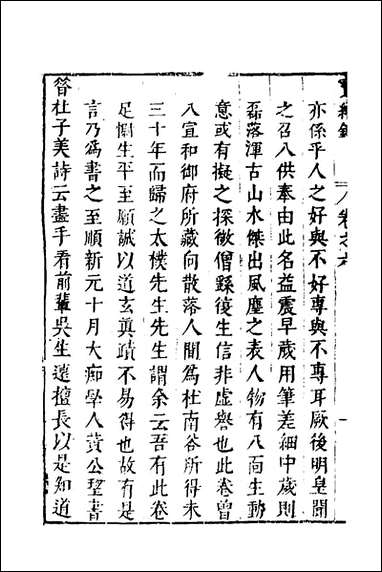 寶繪錄 卷之六 一
亦係乎人之好與不好專與不專耳厥後明皇聞
之召入供奉由此名益震早歲用筆差細中歲則
磊落渾古山水傑出風塵之表人物有八面生動
意或有擬之探微僧繇後生信非虛譽也此卷曾
入宣和御府所藏向散落人間為杜南谷所得未
三十年而歸之太樸先生先生謂余云吾有此卷
足慰生平至願誠以道玄真蹟不易得也故有是
言乃為書之至順新元十月大癡學人黃公望書
昝杜子美詩云畫手看前輩吳生遠擅長以是知道